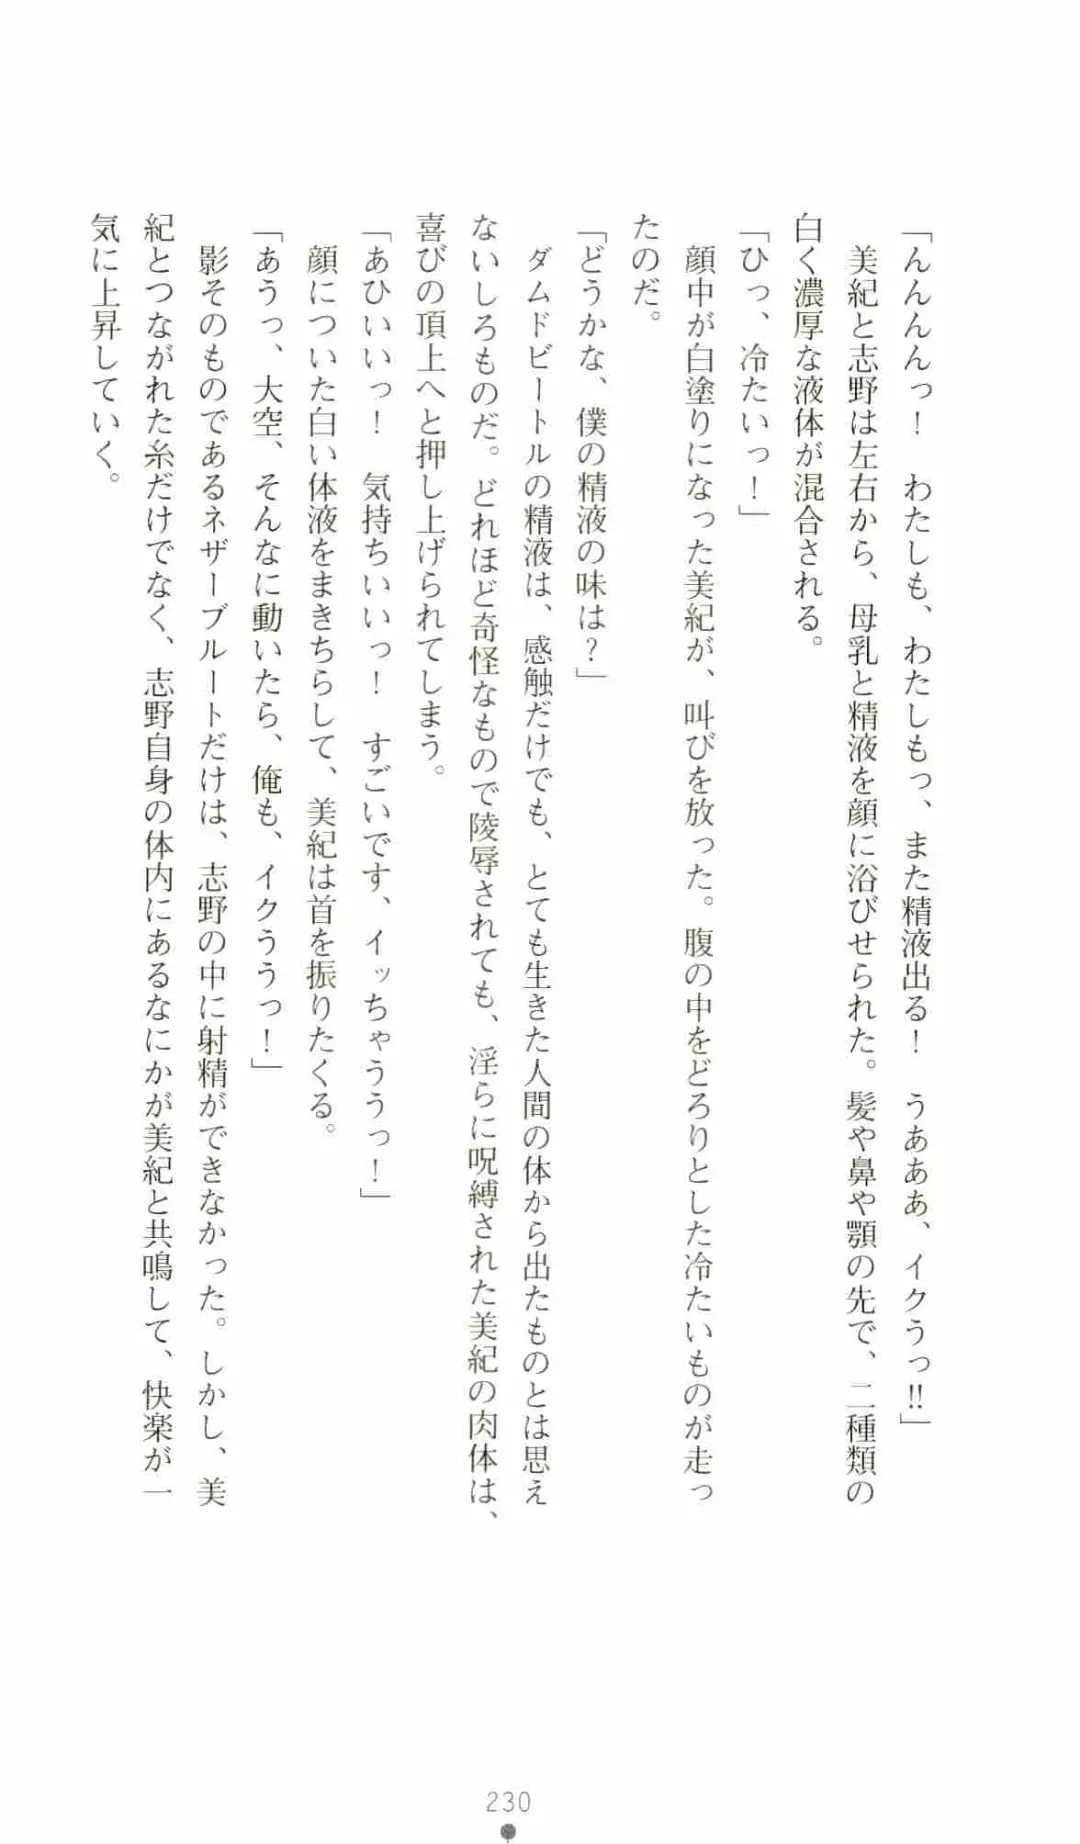 「んんんんっ！　わたしも、わたしもっ、また精液出る！　うあああ、イクうっ!!」
　美紀と志野は左右から、母乳と精液を顔に浴びせられた。髪や鼻や顎の先で、二種類の
白く濃厚な液体が混合される。
「ひっ、冷たいっ！」
　顔中が白塗りになった美紀が、叫びを放った。腹の中をどろりとした冷たいものが走っ
たのだ。
「どうかな、僕の精液の味は？」
　ダムドビートルの精液は、感触だけでも、とても生きた人間の体から出たものとは思え
ないしろものだ。どれほど奇怪なもので陵辱されても、淫らに呪縛された美紀の肉体は、
喜びの頂上へと押し上げられてしまう。
「あひいいっ！　気持ちいいっ！　すごいです、イッちゃううっ！」
　顔についた白い体液をまきちらして、美紀は首を振りたくる。
「あうっ、大空、そんなに動いたら、俺も、イクううっ！」
　影そのものであるネザーブルートだけは、志野の中に射精ができなかった。しかし、美
紀とつながれた糸だけでなく、志野自身の体内にあるなにかが美紀と共鳴して、快楽が一
気に上昇していく。
230